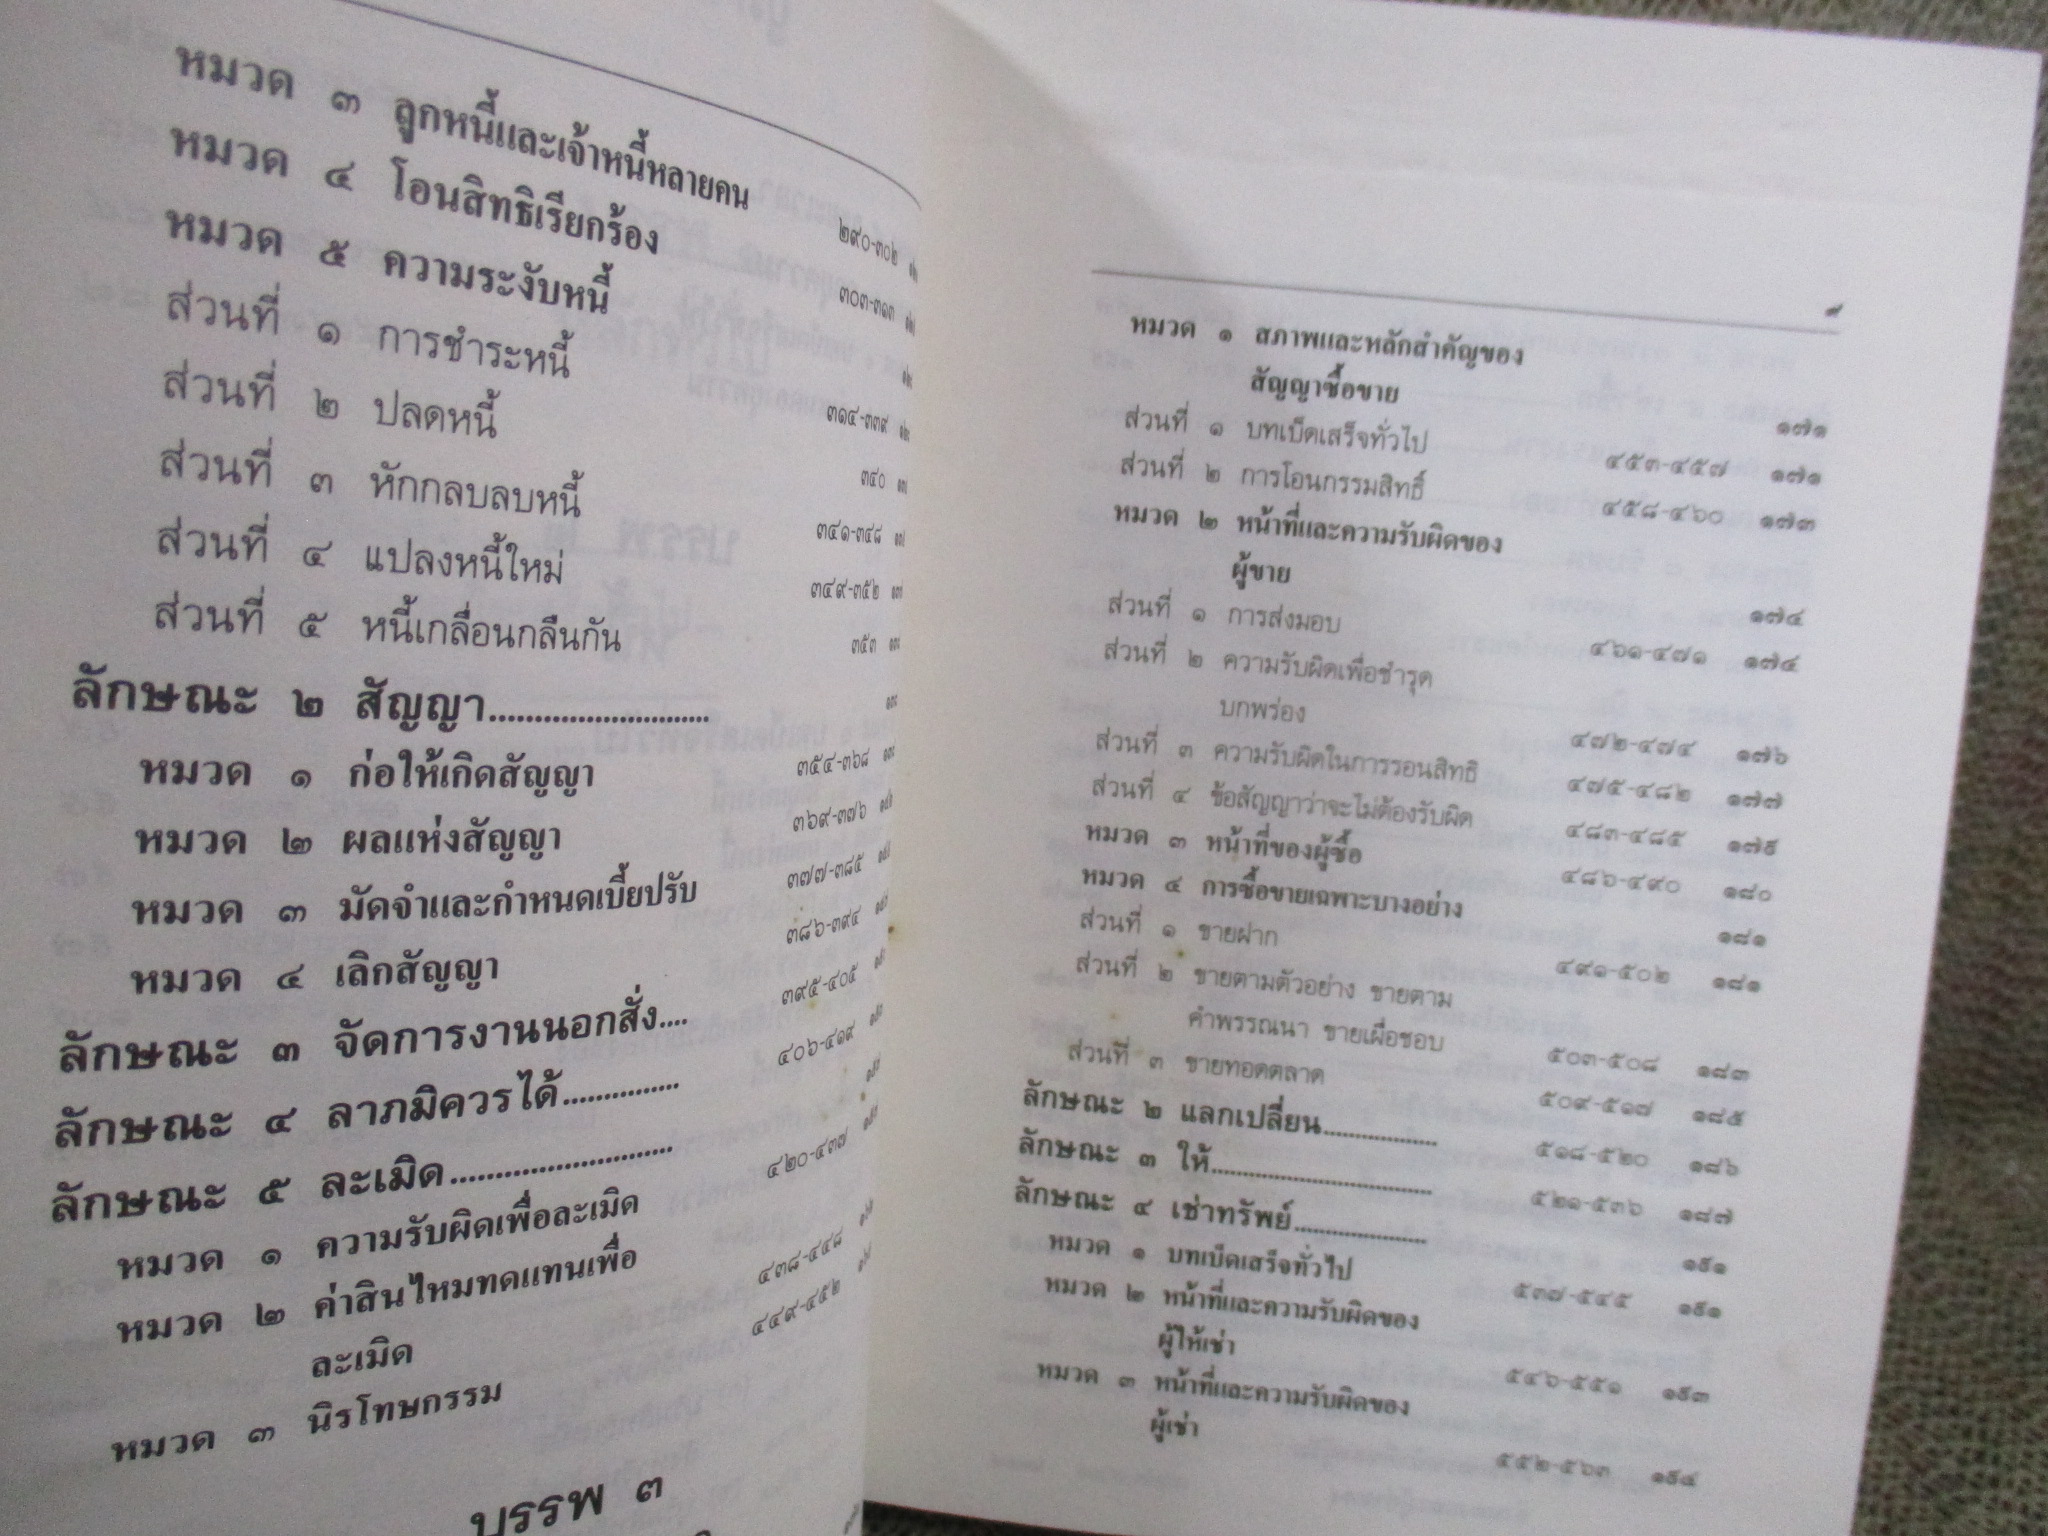 หมวด ๓ ลูกหนี้และเจ้าหนี้หลายคน ๒๙๐-๓๐๒
หมวด ๔ โอนสิทธิเรียกร้อง ๓๐๓-๓๑๓
หมวด ๕ ความระงับหนี้
ส่วนที่ ๑ การชำระหนี้ ๓๑๔-๓๓๙
ส่วนที่ ๒ ปลดหนี้ ๓๔๐
ส่วนที่ ๓ หักกลบลบหนี้ ๓๔๑-๓๔๘
ส่วนที่ ๔ แปลงหนี้ใหม่ ๓๔๙-๓๕๒
ส่วนที่ ๕ หนี้เกลื่อนกลืนกัน ๓๕๓
ลักษณะ ๒ สัญญา...........................
หมวด ๑ ก่อให้เกิดสัญญา ๓๕๔-๓๖๘
หมวด ๒ ผลแห่งสัญญา ๓๖๙-๓๗๖
หมวด ๓ มัดจำและกำหนดเบี้ยปรับ ๓๗๗-๓๘๕
หมวด ๔ เลิกสัญญา ๓๘๖-๓๙๔
ลักษณะ ๓ จัดการงานนอกสั่ง.... ๓๙๕-๔๐๕
ลักษณะ ๔ ลาภมิควรได้............... ๔๐๖-๔๑๙
ลักษณะ ๕ ละเมิด...........................
หมวด ๑ ความรับผิดเพื่อละเมิด ๔๒๐-๔๓๗
หมวด ๒ ค่าสินไหมทดแทนเพื่อ
ละเมิด ๔๓๘-๔๔๘
หมวด ๓ นิรโทษกรรม ๔๔๙-๔๕๒
บรรพ ๓
๙
หมวด ๑ สภาพและหลักสำคัญของ
สัญญาซื้อขาย ๑๗๑
ส่วนที่ ๑ บทเบ็ดเสร็จทั่วไป ๔๕๓-๔๕๗ ๑๗๑
ส่วนที่ ๒ การโอนกรรมสิทธิ์ ๔๕๘-๔๖๐ ๑๗๓
หมวด ๒ หน้าที่และความรับผิดของ
ผู้ขาย ๑๗๔
ส่วนที่ ๑ การส่งมอบ ๔๖๑-๔๗๑ ๑๗๔
ส่วนที่ ๒ ความรับผิดเพื่อชำรุด
บกพร่อง ๔๗๒-๔๗๔ ๑๗๖
ส่วนที่ ๓ ความรับผิดในการรอนสิทธิ ๔๗๕-๔๘๒ ๑๗๗
ส่วนที่ ๔ ข้อสัญญาว่าจะไม่ต้องรับผิด ๔๘๓-๔๘๕ ๑๗๙
หมวด ๓ หน้าที่ของผู้ซื้อ ๔๘๖-๔๙๐ ๑๘๐
หมวด ๔ การซื้อขายเฉพาะบางอย่าง ๑๘๑
ส่วนที่ ๑ ขายฝาก ๔๙๑-๕๐๒ ๑๘๑
ส่วนที่ ๒ ขายตามตัวอย่าง ขายตาม
คำพรรณนา ขายเผื่อชอบ ๕๐๓-๕๐๘ ๑๘๓
ส่วนที่ ๓ ขายทอดตลาด ๕๐๙-๕๑๗ ๑๘๕
ลักษณะ ๒ แลกเปลี่ยน.................. ๕๑๘-๕๒๐ ๑๘๖
ลักษณะ ๓ ให้................................... ๕๒๑-๕๓๖ ๑๘๗
ลักษณะ ๔ เช่าทรัพย์..................... ๑๙๑
หมวด ๑ บทเบ็ดเสร็จทั่วไป ๕๓๗-๕๔๕ ๑๙๑
หมวด ๒ หน้าที่และความรับผิดของ
ผู้ให้เช่า ๕๔๖-๕๕๑ ๑๙๓
หมวด ๓ หน้าที่และความรับผิดของ
ผู้เช่า ๕๕๒-๕๖๓ ๑๙๔